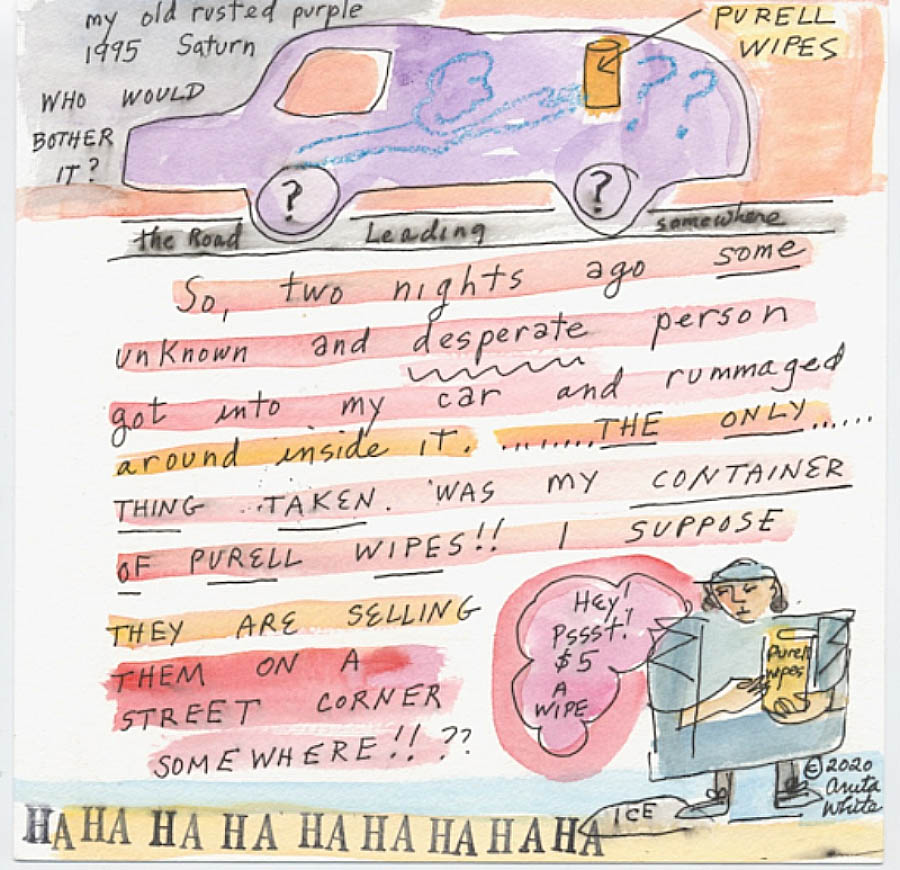 my old rusted purple
1995 Saturn
PURELL
WIPES
WHO WOULD
BOTHER
IT?
??
?
?
the Road Leading somewhere
So, two nights ago some
unknown and desperate person
got into my car and rummaged
around inside it. .........THE ONLY......
THING ...TAKEN. WAS MY CONTAINER
OF PURELL WIPES!! I SUPPOSE
THEY ARE SELLING
THEM ON A
STREET CORNER
SOMEWHERE!! ??
HEY!
Pssst!
$5
A
WIPE
Purell
wipes
ICE
© 2020
Anita
White
HA HA HA HA HA HA HA HA HA